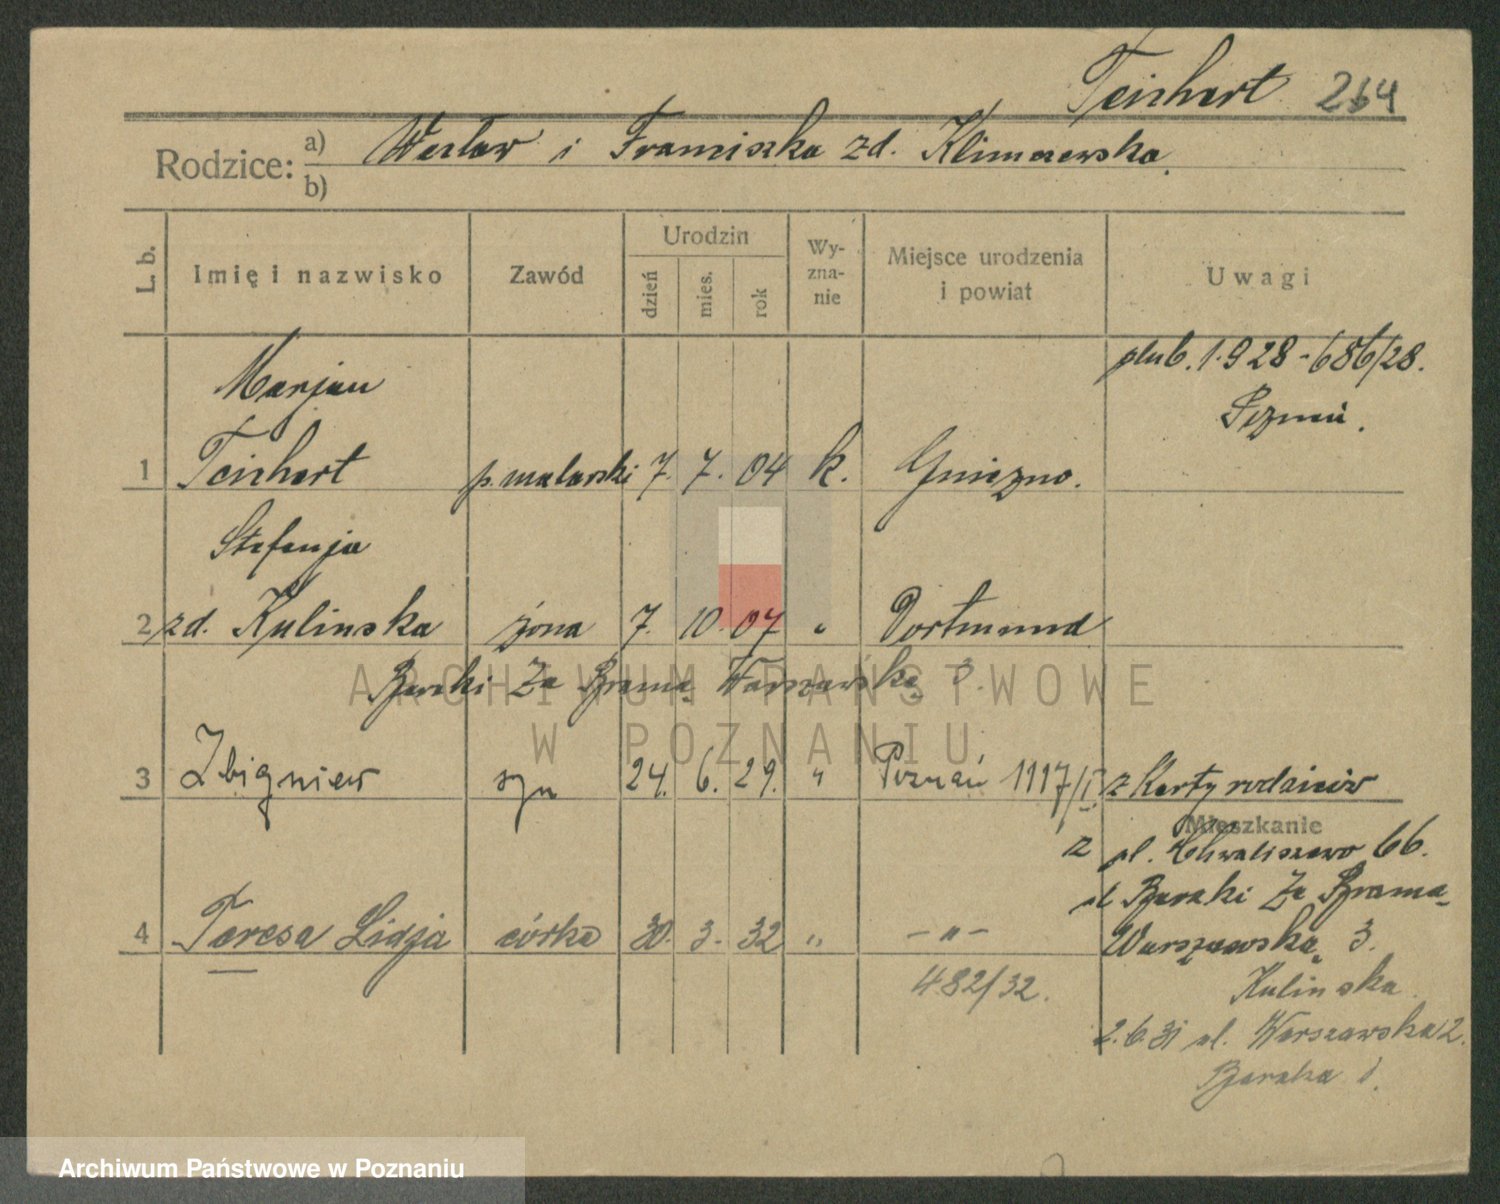 Teichert 264
Rodzice: a) Wacław i Franciszka zd. Klimczewska.
b)
L. b. Imię i nazwisko Zawód Urodzin dzień mies. rok Wy-zna-nie Miejsce urodzenia i powiat Uwagi
ślub. 1.928 - 686/28.
Marjan
Poznań.
1 Teichert p. malarski 7. 7. 04 k. Gniezno.
Stefanja
2 zd. Kulinska żona 7. 10. 07 " Dortmund
Baraki Za Bramą Warszawską 3.
3 Zbigniew syn 24. 6. 29. " Poznań 1117/I z Karty rodziców
Mieszkanie
z ul. Chwaliszewo 66.
Baraki Za Bramą
4 Teresa Lidja córka 30. 3. 32 " - " - Warszawską 3.
482/32. Kulinska
2.6.31 ul. Warszawska 2.
Baraka
ARCHIWUM PAŃSTWOWE
W POZNANIU
Archiwum Państwowe w Poznaniu